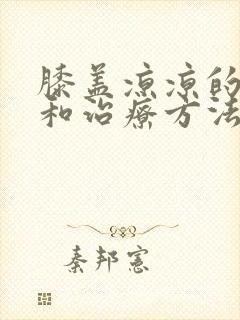 膝盖凉凉的
和治疗方法
秦邦宪